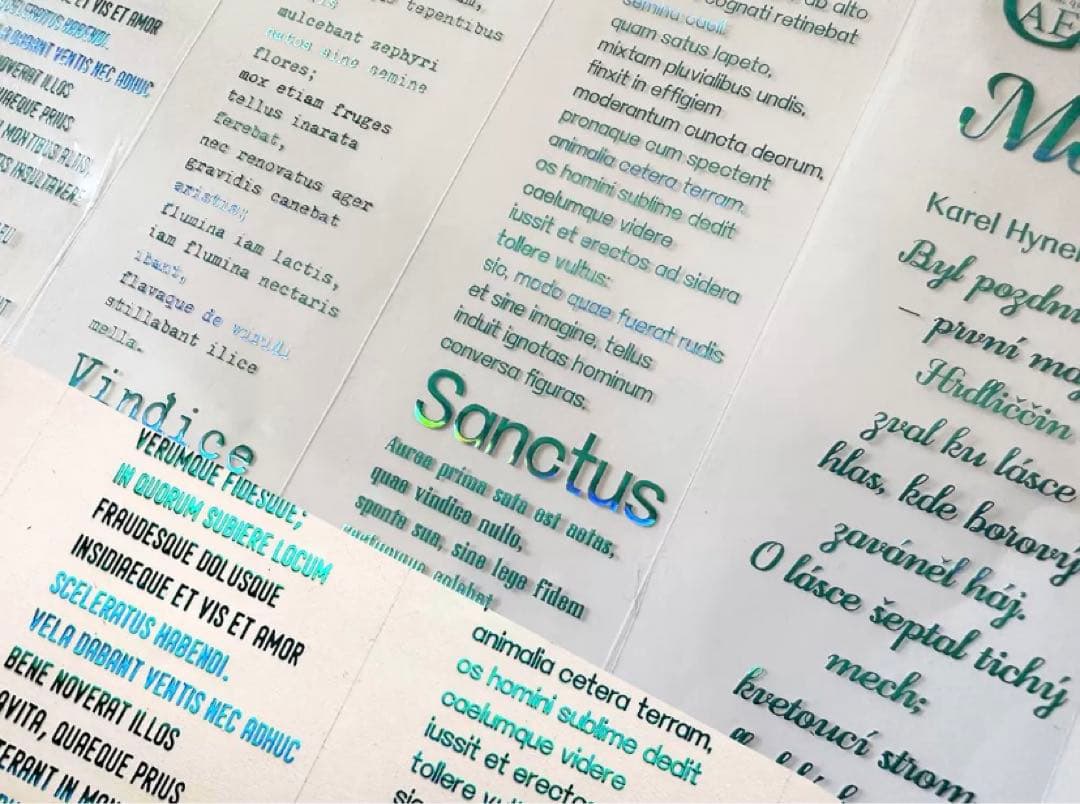 ET VIS ET AMOR
SCELERATUS HABENDI.
VELA DABANT VENTIS NEC ADHUC
NOVERAT ILLOS
QUAEQUE PRIUS
MONTIBUS ALTIS,
INSULTAVERE
tepentibus
mulcebant zephyri
natos sine semine
flores;
mox etiam fruges
tellus inarata
ferebat,
nec renovatus ager
gravidis canebat
aristis;
flumina iam lactis,
iam flumina nectaris
ibant,
flavaque de viridi
stillabant ilice
mella.
Vindice
ab alto
cognati retinebat
semina caeli.
quam satus Iapeto,
mixtam pluvialibus undis,
finxit in effigiem
moderantum cuncta deorum,
pronaque cum spectent
animalia cetera terram,
os homini sublime dedit
caelumque videre
iussit et erectos ad sidera
tollere vultus:
sic, modo quae fuerat rudis
et sine imagine, tellus
induit ignotas hominum
conversa figuras.
Sanctus
Aurea prima sata est aetas,
quae vindice nullo,
sponte sua, sine lege fidem
AE
Karel Hyne
Byl pozdn
– první má
Hrdliččin
zval ku lásce
hlas, kde borový
zaváněl háj.
O lásce šeptal tichý
mech;
kvetoucí strom
VERUMQUE FIDESQUE;
IN QUORUM SUBIERE LOCUM
FRAUDESQUE DOLUSQUE
INSIDIAEQUE ET VIS ET AMOR
SCELERATUS HABENDI.
VELA DABANT VENTIS NEC ADHUC
BENE NOVERAT ILLOS
AVITA, QUAEQUE PRIUS
TERANT IN MON
animalia cetera terram,
os homini sublime dedit
caelumque videre
iussit et erecto
tollere vu
sic